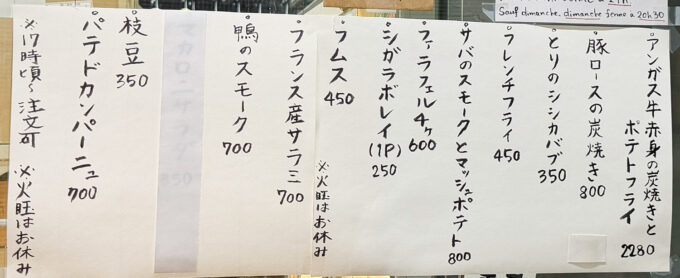 Sauf dimanche, dimanche ferme a 20h30
・アンガス牛赤身の炭焼きと
ポテトフライ
2280
・豚ロースの炭焼き
800
・とりのシシカバブ
350
・フレンチフライ
450
・サバのスモークとマッシュポテト
800
・ファラフェル4ヶ
600
・シガラボレイ(1P)
250
・フムス
450
※火旺はお休み
・フランス産サラミ
700
・鴨のスモーク
700
マカロニサラダ
350
・枝豆
350
・パテドカンパーニュ
700
※17時頃〜注文可
※火旺はお休み